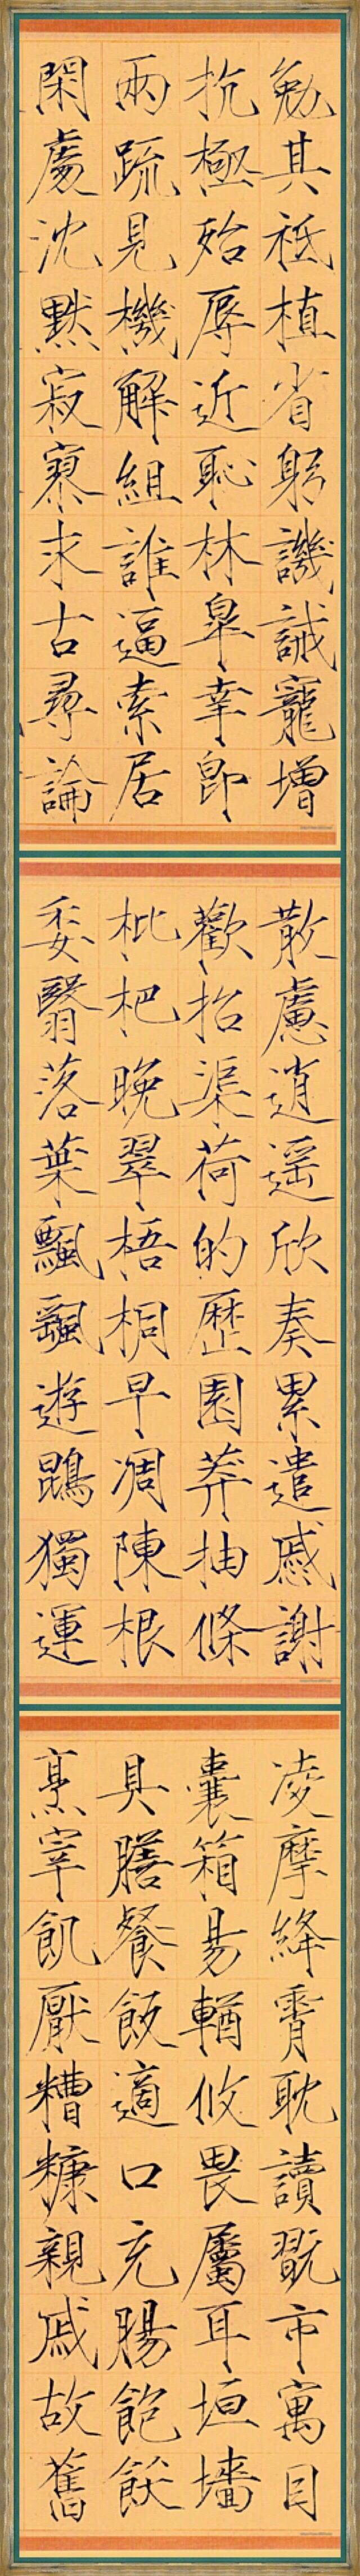 勉其祗植省躬譏誡寵增
抗極殆辱近恥林皋幸即
兩疏見機解組誰逼索居
閑處沈默寂寥求古尋論
散慮逍遥欣奏累遣慼謝
歡招渠荷的歷園莽抽條
枇杷晚翠梧桐早凋陳根
委翳落葉飄飖遊鵾獨運
凌摩絳霄耽讀翫市寓目
囊箱易輶攸畏屬耳垣墻
具膳餐飯適口充腸飽飫
烹宰飢厭糟糠親戚故舊